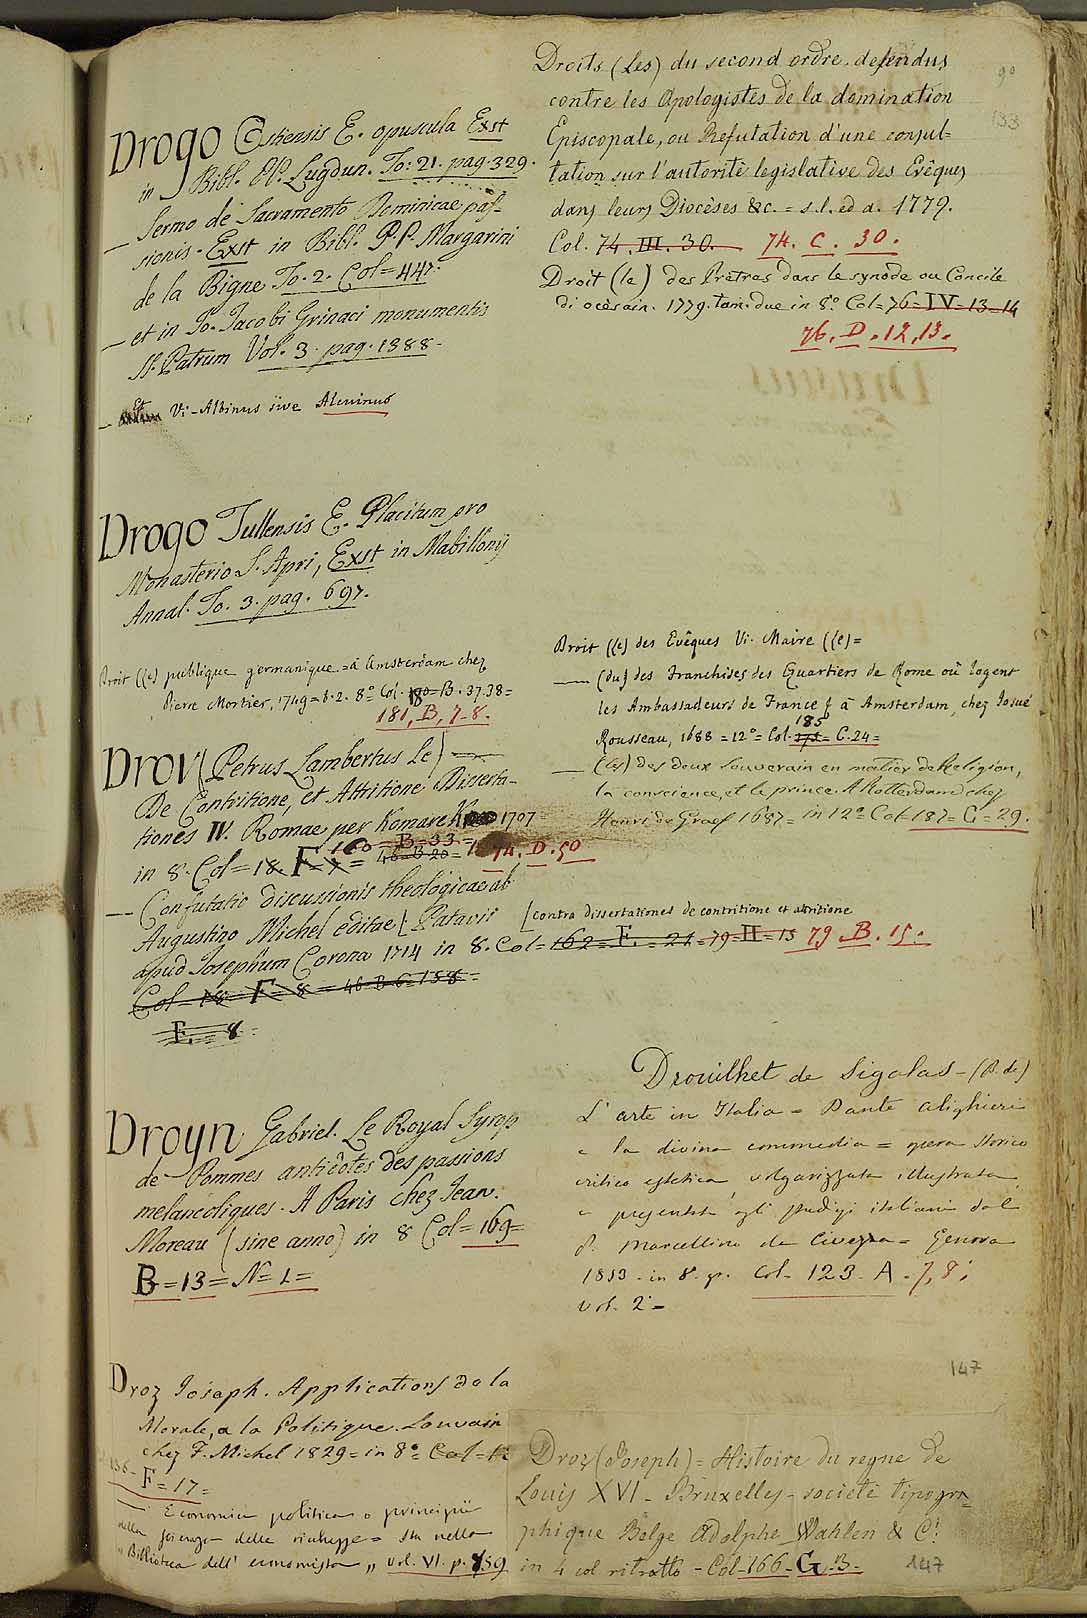 Drogo Ostiensis E. opuscula Exst
in Bibl. PP. Lugdun. To: 21. pag. 329.
— Sermo de Sacramento Dominicae pas-
sionis. Exst in Bibl. P.P. Margarini
de la Bigne To. 2. Col = 447.
— et in Jo. Jacobi Grinaei monumentis
SS. Patrum Vol. 3. pag. 1388.
— Et Vi. Albinus sive Alcuinus
Drogo Tullensis E. Placitum pro
Monasterio S. Apri, Exst in Mabillonij
Annal. To. 3. pag. 697.
Droit (le) publique germanique = à Amsterdam chez
Pierre Mortier, 1749 = t. 2. 8° Col. 180 B. 37.38 =
181, B, 7-8.
Drou (Petrus Lambertus Le) —
De Contritione, et Attritione Disserta-
tiones IV. Romae per Komarek 1707
160 = B = 33 =
in 8. Col = 18. F = 7 = 46 B 20 = 74. D. 50
— Confutatio discussionis theologicae ab
Augustino Michel editae [Patavii [contra dissertationes de contritione et attritione
apud Josephum Corona 1714 in 8. Col = 162 = F. = 21 = 79 = H = 15 79. B. 15.
Col = 18 = F = 8 = 46 B 6 = 158 =
F. = 8
Droyn Gabriel. Le Royal Syrop
de Pommes antidotes des passions
melancoliques. A Paris chez Jean.
Moreau (sine anno) in 8 Col = 169 =
B = 13 = N = 1 =
Droz Joseph. Applications de la
Morale, a la Politique. Louvain
chez F. Michel 1829 = in 8° Col =
F = 17 =
— Economia politica o principii
della scienza delle ricchezze = Sta nella
„Biblioteca dell' economista „ vol. VI. p. 859
Droits (Les) du second ordre defendus
contre les Apologistes de la domination
Episcopale, ou Refutation d'une consul-
tation sur l'autorité legislative des Evêques
dans leurs Diocèses &c. = s.l. ed a. 1779.
Col. 74. III. 30. 74. C. 30.
Droit (le) des Prêtres dans le synode ou Concile
diocèsain. 1779. tom. due in 8° Col = 76 = IV = 13 = 14
76. D. 12, 13.
Droit (le) des Evêques Vi. Maire (le) =
— (du) des Franchises des Quartiers de Rome où logent
les Ambassadeurs de France à Amsterdam, chez Josué
185
Rousseau, 1688 = 12° = Col. 175 = C. 24 =
— (les) des deux souverain en matier de Religion,
la conscience, et le prince. A Rotterdam chez
Henri de Graef 1687 = in 12° Col. 187 = C = 29.
Drouilhet de Sigalas - (B. de)
L'arte in Italia = Dante Alighieri
e la divina commedia = opera storico
critico estetica, volgarizzata illustrata
e presentata agl' studiosi italiani dal
P. Marcellino da Civezza = Genova
1853 - in 8. gr. Col - 123. A. 7, 8;
vol. 2 =
147
Droz (Joseph) = Histoire du regne de
Louis XVI - Bruxelles - société tipogra-
phique Belge Adolphe Wahlen & C.
in 4 col ritratto - Col - 166 - G. 3 -
147
90
133